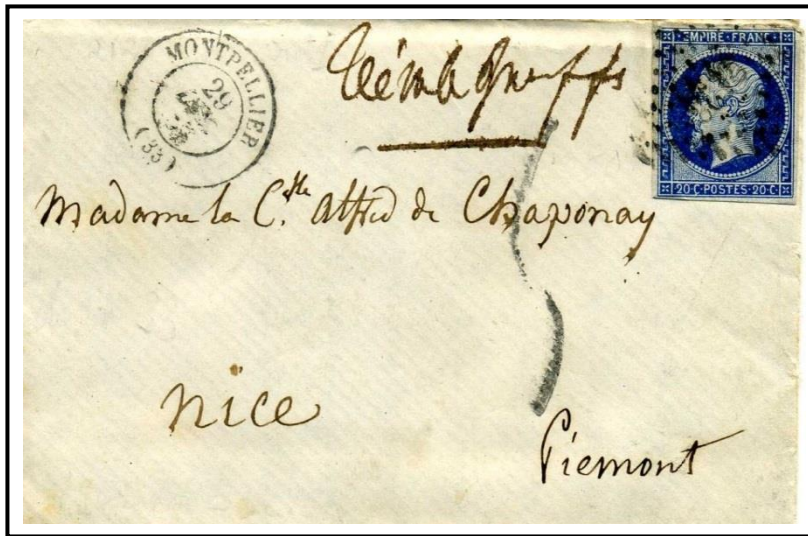 MONTPELLIER
29
(33)
EMPIRE · FRANC
20·C·POSTES·20·C
Madame la C.sse Alfred de Chaponay
Nice
Piemont